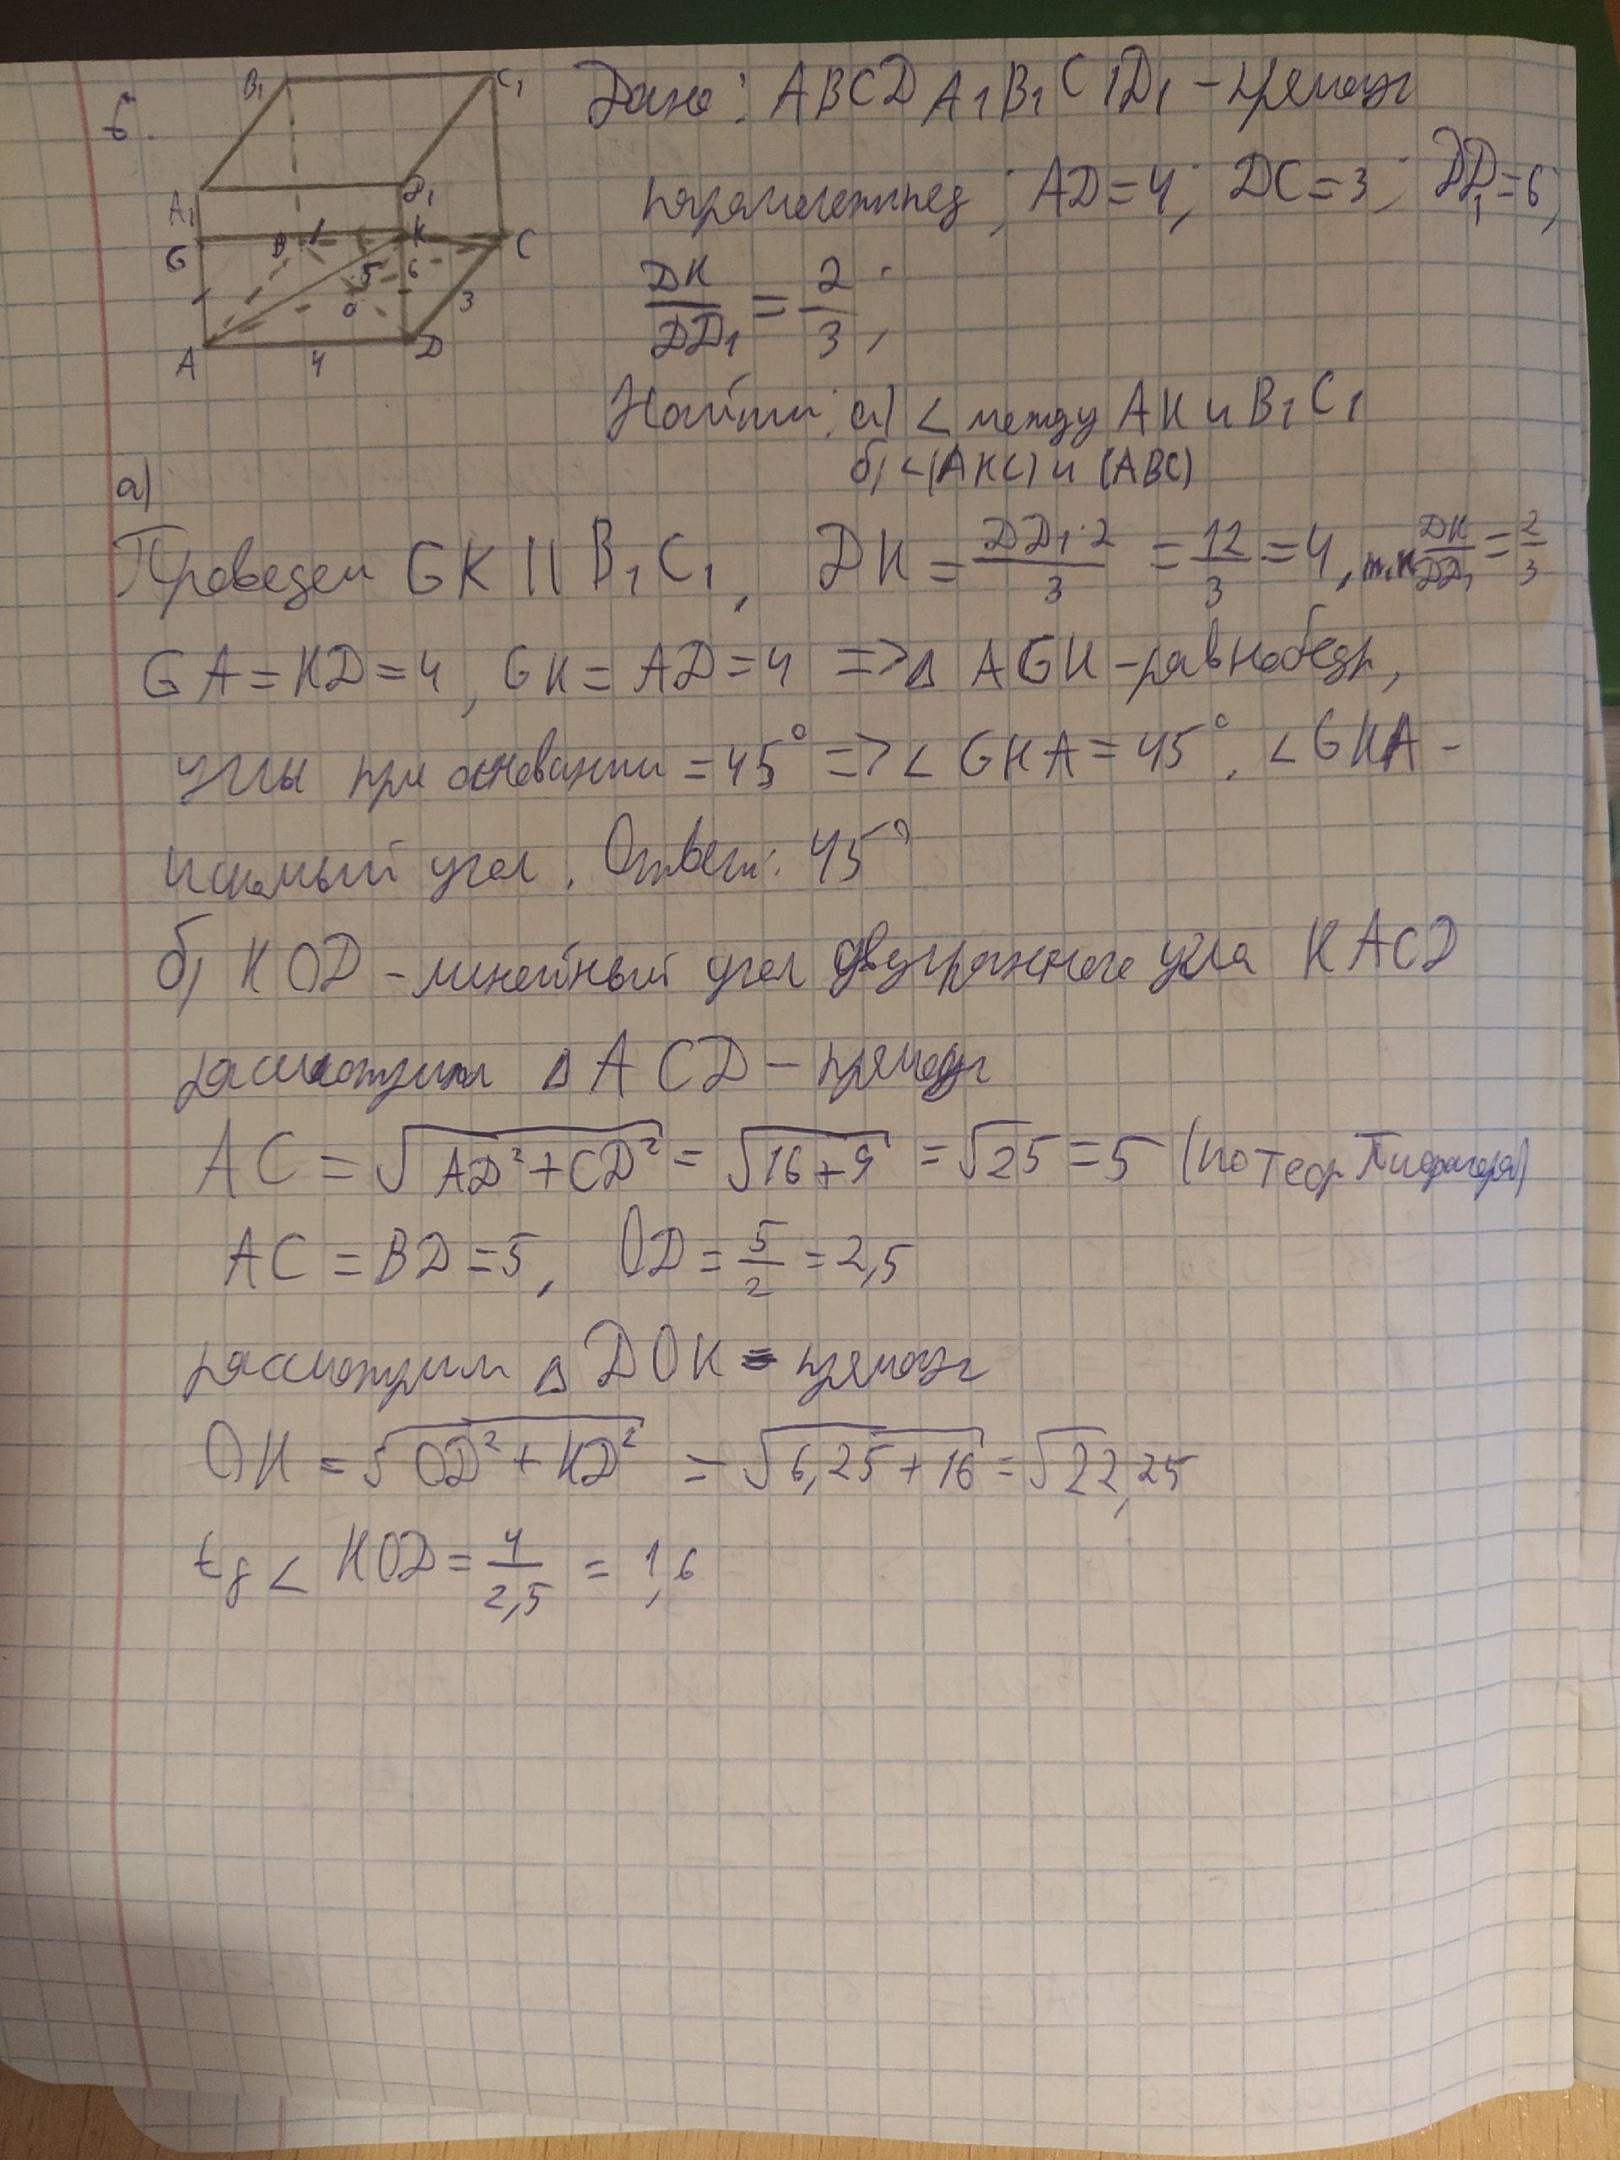 6.
B₁ C₁ A₁ D₁ G B K C 5 6 3 O A 4 D
Дано: ABCDA₁B₁C₁D₁ - прямоуг
параллелепипед; AD=4; DC=3; DD₁=6;
DK/DD₁ = 2/3;
Найти: а) ∠ между AK и B₁C₁
б) ∠(AKC) и (ABC)
а)
Проведем GK || B₁C₁, DK = DD₁·2/3 = 12/3 = 4, т.к DK/DD₁ = 2/3
GA=KD=4, GK=AD=4 => Δ AGK - равнобедр,
углы при основании = 45° => ∠ GKA = 45°. ∠ GKA -
искомый угол. Ответ: 45°
б) KOD - линейный угол двугранного угла KACD
рассмотрим Δ ACD - прямоуг
AC = √AD²+CD² = √16+9 = √25 = 5 (по теор Пифагора)
AC = BD = 5, OD = 5/2 = 2,5
рассмотрим Δ DOK - прямоуг
OK = √OD²+KD² = √6,25+16 = √22,25
tg ∠ KOD = 4/2,5 = 1,6